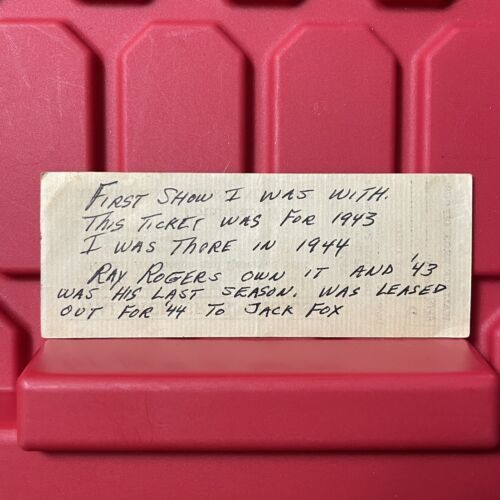 FIRST SHOW I WAS WITH.
THIS TICKET WAS FOR 1943
I WAS THORE IN 1944
RAY ROGERS OWN IT AND '43
WAS HIS LAST SEASON. WAS LEASED
OUT FOR '44 TO JACK FOX